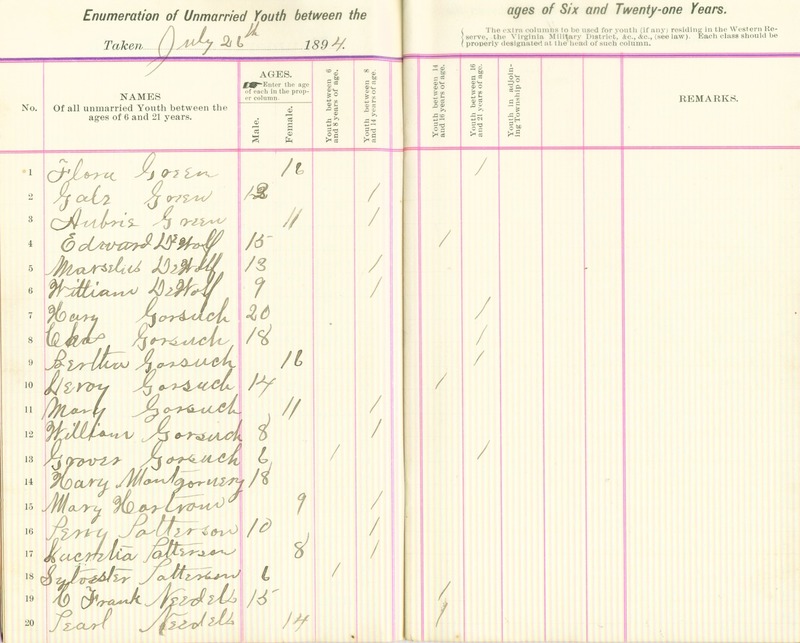 Enumeration of Unmarried Youth between the ages of Six and Twenty-one Years.
Taken July 26th 1894.
The extra columns to be used for youth (if any) residing in the Western Re-
serve, the Virginia Military District, &c., &c., (see law). Each class should be
properly designated at the head of such column.
No.
NAMES
Of all unmarried Youth between the
ages of 6 and 21 years.
AGES.
Enter the age
of each in the prop-
er column.
Male.
Female.
Youth between 6
and 8 years of age.
Youth between 8
and 14 years of age.
Youth between 14
and 16 years of age.
Youth between 16
and 21 years of age.
Youth in adjoin-
ing Township of
REMARKS.
1 Flora Green 16 /
2 Gale Green 13 /
3 Aubrie Green 11 /
4 Edward DeWolf 15 /
5 Marselus DeWolf 13 /
6 William DeWolf 9 /
7 Hary Gorsuch 20 /
8 Chas Gorsuch 18 /
9 Bertha Gorsuch 16 /
10 Leroy Gorsuch 14 /
11 Mary Gorsuch 11 /
12 William Gorsuch 8 /
13 Grover Gorsuch 6 / /
14 Hary Montgomery 18
15 Mary Hartrom 9 /
16 Perry Patterson 10 /
17 Lucretia Patterson 8 /
18 Sylvester Patterson 6 /
19 C Frank Needels 15 /
20 Pearl Needels 14 /